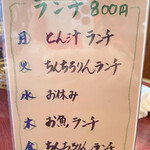 ランチ 800円
月 とん汁 ランチ
火 ちんちろりん ランチ
水 お休み
木 お魚 ランチ
金 ちんちろりん ランチ